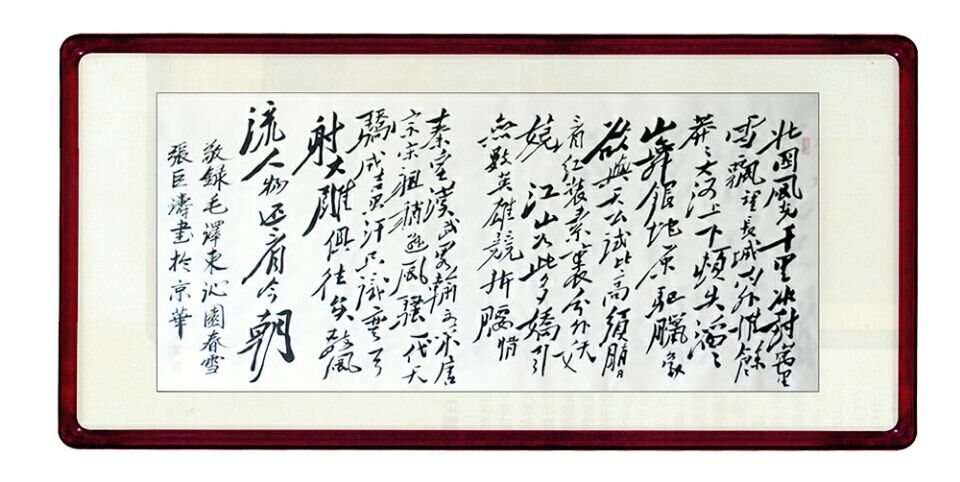 北国風光千里冰封萬里
雪飄望長城内外惟餘
莽々大河上下頓失滔々
山舞銀蛇原馳臘象
欲與天公試比高須晴
看红装素裹分外妖
嬈江山如此多嬌引
無數英雄競折腰惜
秦皇漢武略輸文采唐
宗宋祖稍遜風騷一代天
驕成吉思汗只識彎弓
射大雕俱往矣數風
流人物还看今朝
敬錄毛澤東沁園春雪
張巨濤書於京華